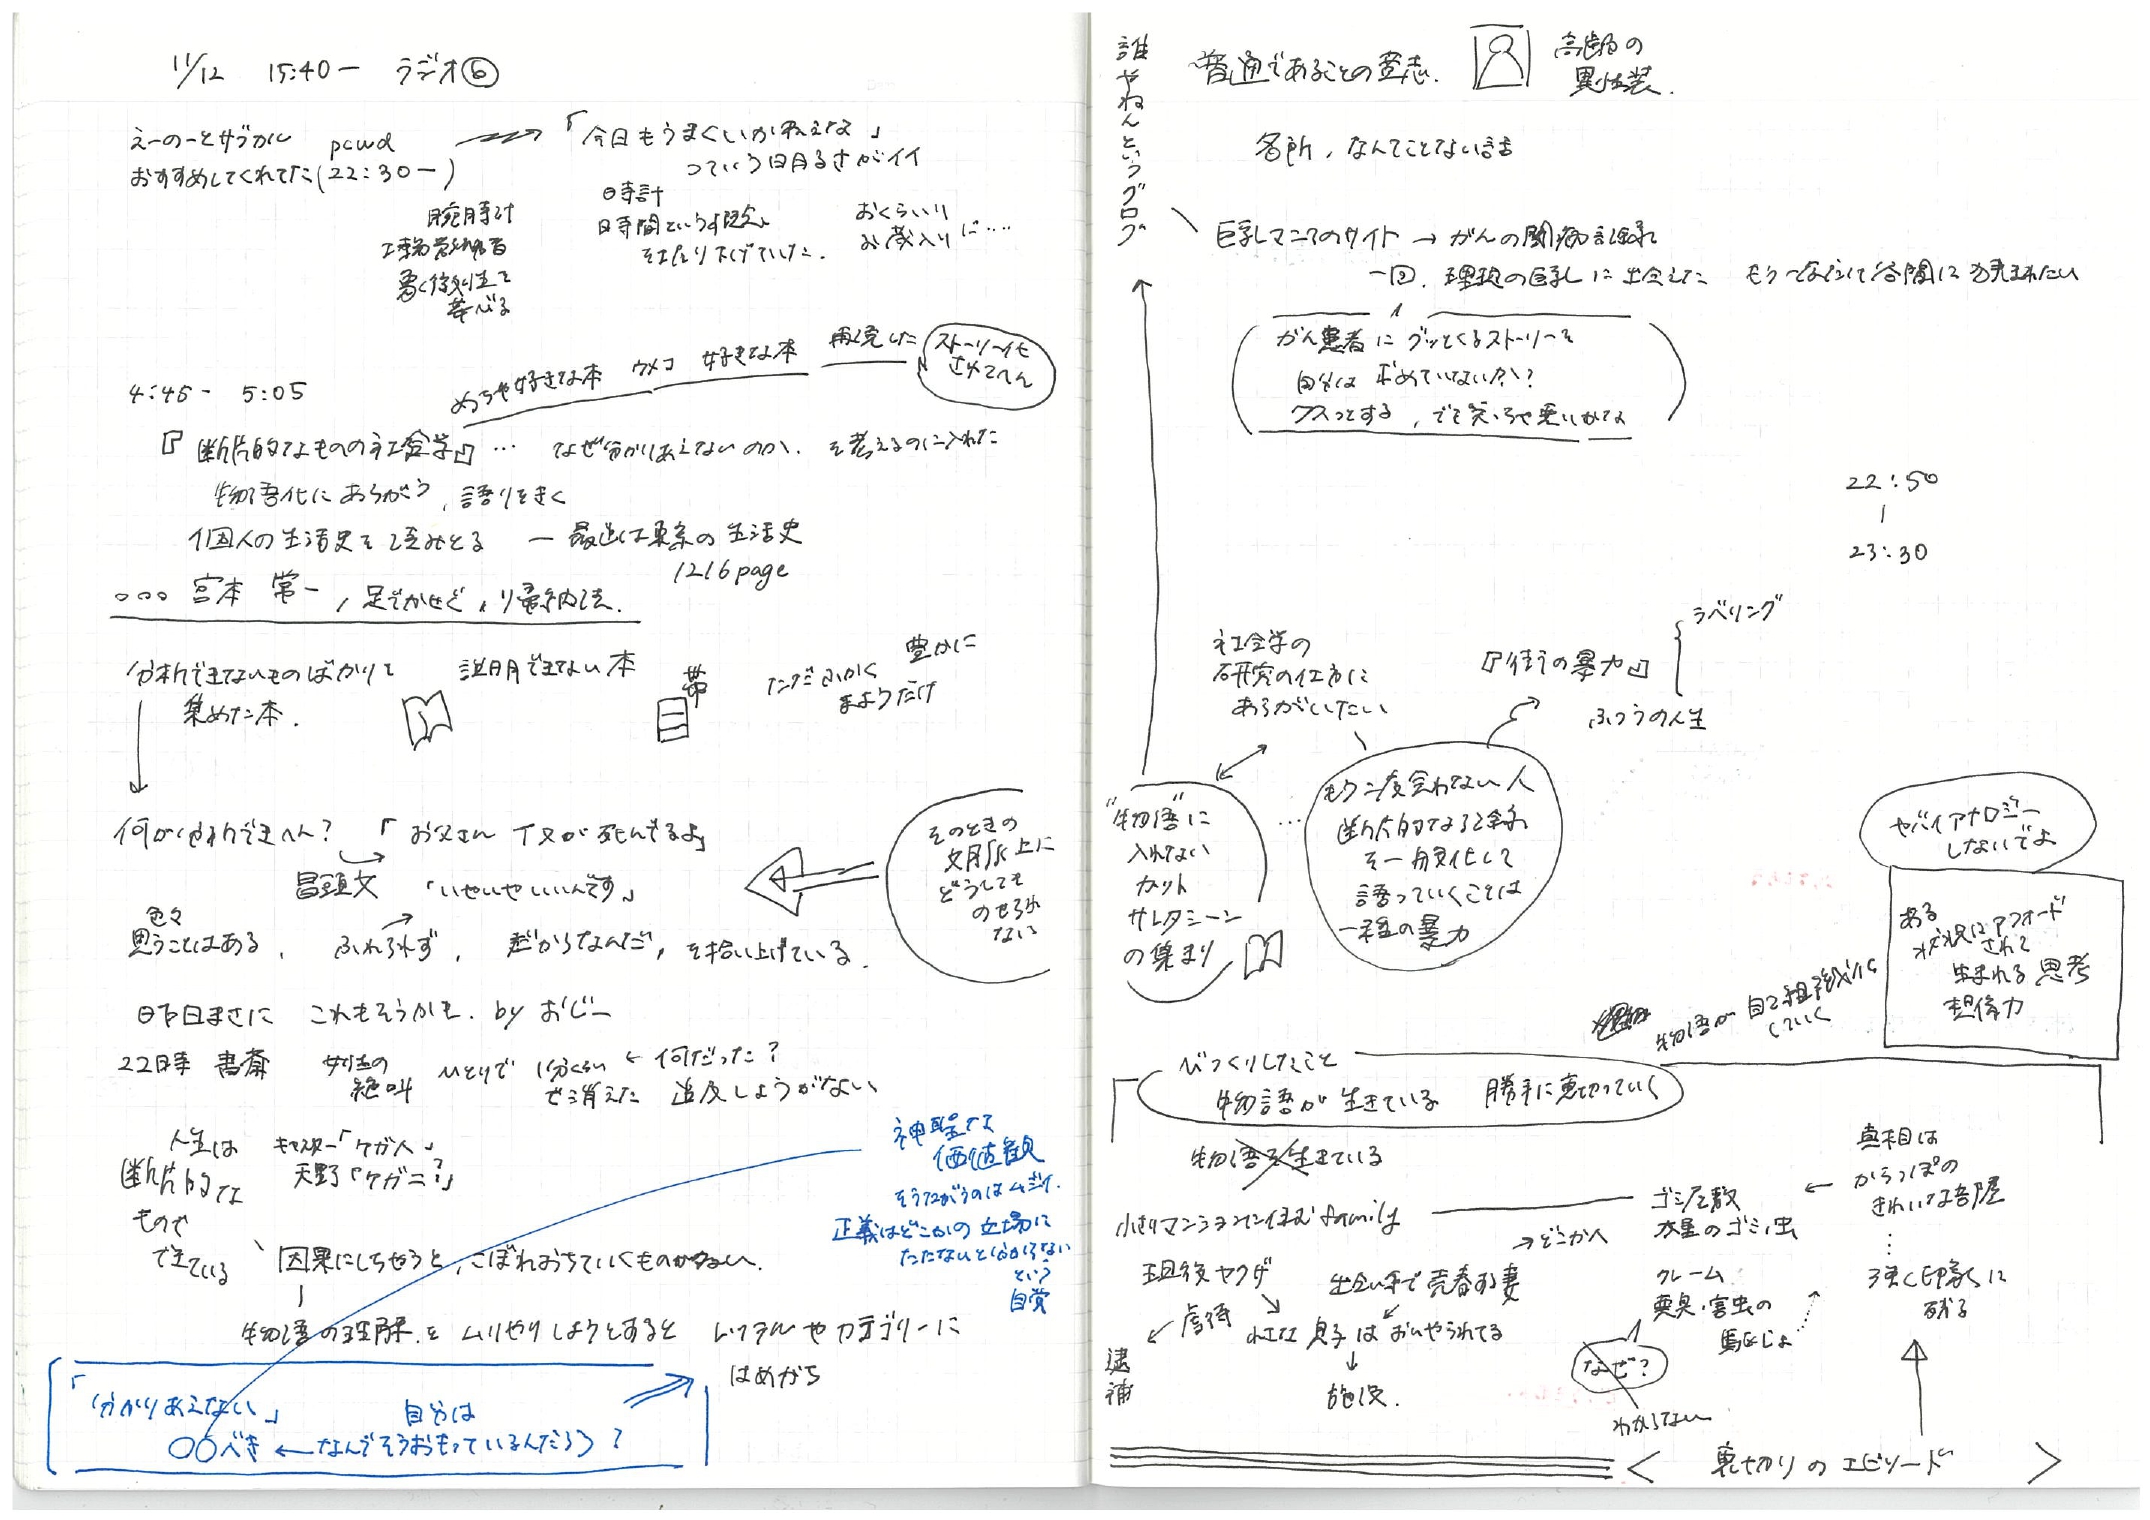 11/12 15:40ー ラジオ⑥
えーのーとサブカル pcwd
おすすめしてくれてた(22:30ー)
「今日もうまくいかねえな」
っていう明るさがイイ
腕時計
時計
時間という概念
をほり下げていた.
おくらいり
お蔵入りに‥‥
4:45- 5:05
めっちゃ好きな本 ウメコ 好きな本 再読した
ストーリー化
させてへん
『断片的なものの社会学』… なぜ分かりあえないのか、を考えるのに入れた
物語化にあらがう, 語りをきく
個人の生活史を読みとる ー 最近は東京の生活史
1216page
○○○ 宮本 常一, 足でかせぐ, 帰納法.
分析できてないものばかりを
集めた本.
説明できない本
帯
ただふかく
豊かに
まようだけ
何が分析できへん? 「お父さん イヌが死んでるよ」
冒頭文 「いやいやいいんです」
色々
思うことはある, ふれられず, だからなんだ, を拾い上げている.
そのときの
文脈上に
どうしても
のせられ
ない
昨日まさに これもそうかも. by おじー
22時 書斎 女性の
絶叫 ひとりで 1分くらい ← 何だった?
で消えた 追及しようがない
人生は
断片的な
もので
できている
キャスター「ケガ人」
天野「ケガニ?」
因果にしちゃうと, こぼれおちていくものが多い.
物語の理解をムリやりしようとすると レッテルやカテゴリーに
はめがち
神聖な
価値観
そうたがうのはムズイ.
正義はどこかの立場に
たたないと分からない
という
自覚
「分かりあえない」 自分は
○○べき ← なんでそうおもっているんだろう?
誰やねんというブログ
普通であることの意志.
高齢の
異性装.
各所, なんてことない話
巨乳マニアのサイト → がんの闘病記録に
一回, 理想の巨乳に出会えた もう一度だけ谷間に包まれたい
がん患者にグッとくるストーリーを
自分は求めていないか?
クスっとする, でも笑っちゃ悪いかな
22:50
|
23:30
社会学の
研究の仕方に
あらがいたい
『街の暴力』
ラベリング
ふつうの人生
"物語"に
入れない
カット
サレタシーン
の集まり
もう二度と会わない人
断片的なる記録
を一般化して
語っていくことは
一種の暴力
ヤバイアナロジー
しないでよ
ある
状況にアフォード
されて
生まれる思考
想像力
物語が自己組織化
していく
びっくりしたこと
物語が生きている 勝手に裏切っていく
物語を生きている
小さいマンションに住む family
ゴミ屋敷
大量のゴミ, 虫
→ どこかへ
クレーム
悪臭・害虫の
駆じょ
真相は
← からっぽの
きれいな部屋
⋮
強く印象に
残る
元ヤクザ 出会い系で売春する妻
虐待 息子はおいやられてる
逮捕
施設.
なぜ?
わからない
裏切りのエピソード